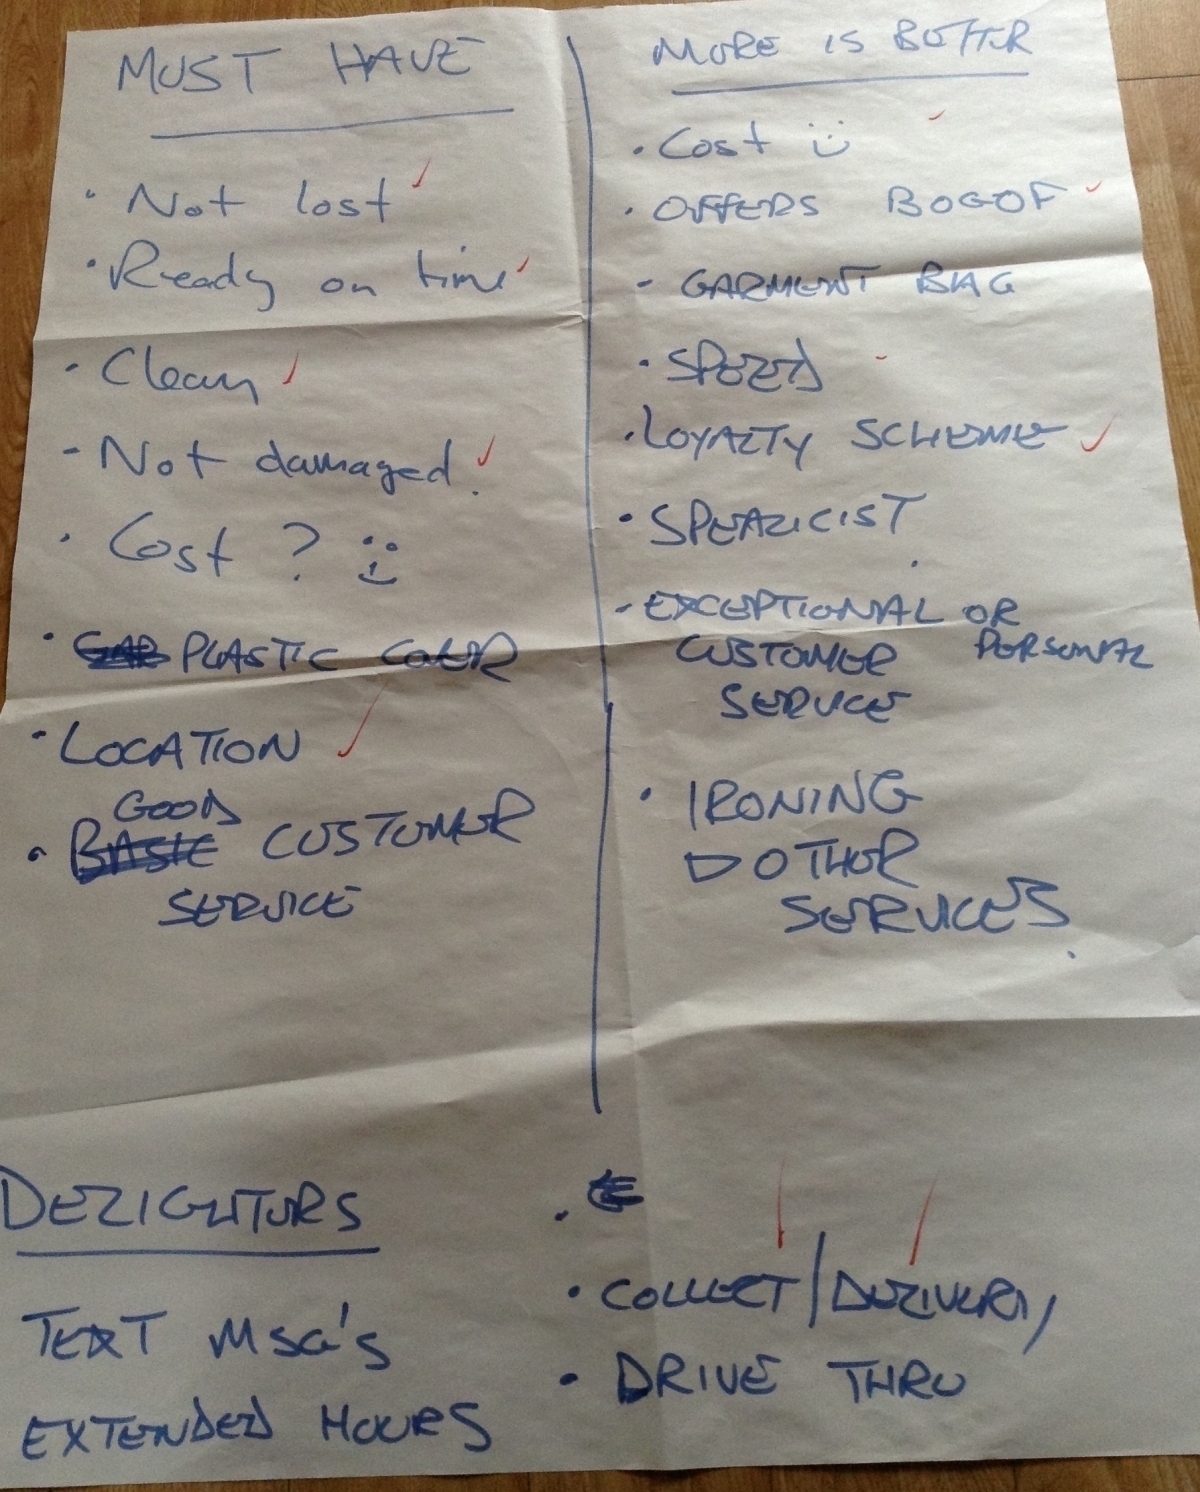 MUST HAVE
· Not lost ✓
· Ready on time ✓
· Clean ✓
- Not damaged. ✓
· Cost ? :)
· PLASTIC COVER
· LOCATION ✓
GOOD
· BASIC CUSTOMER
SERVICE
MORE IS BETTER
· Cost :)
· OFFERS BOGOF ✓
- GARMENT BAG
· SPEED
· LOYALTY SCHEME ✓
· SPEALICIST
- EXCEPTIONAL OR
CUSTOMER PERSONAL
SERVICE
· IRONING
OTHER
SERVICES
DELIGHTORS
TEXT MSG'S
EXTENDED HOURS
· COLLECT/DELIVERY
· DRIVE THRU